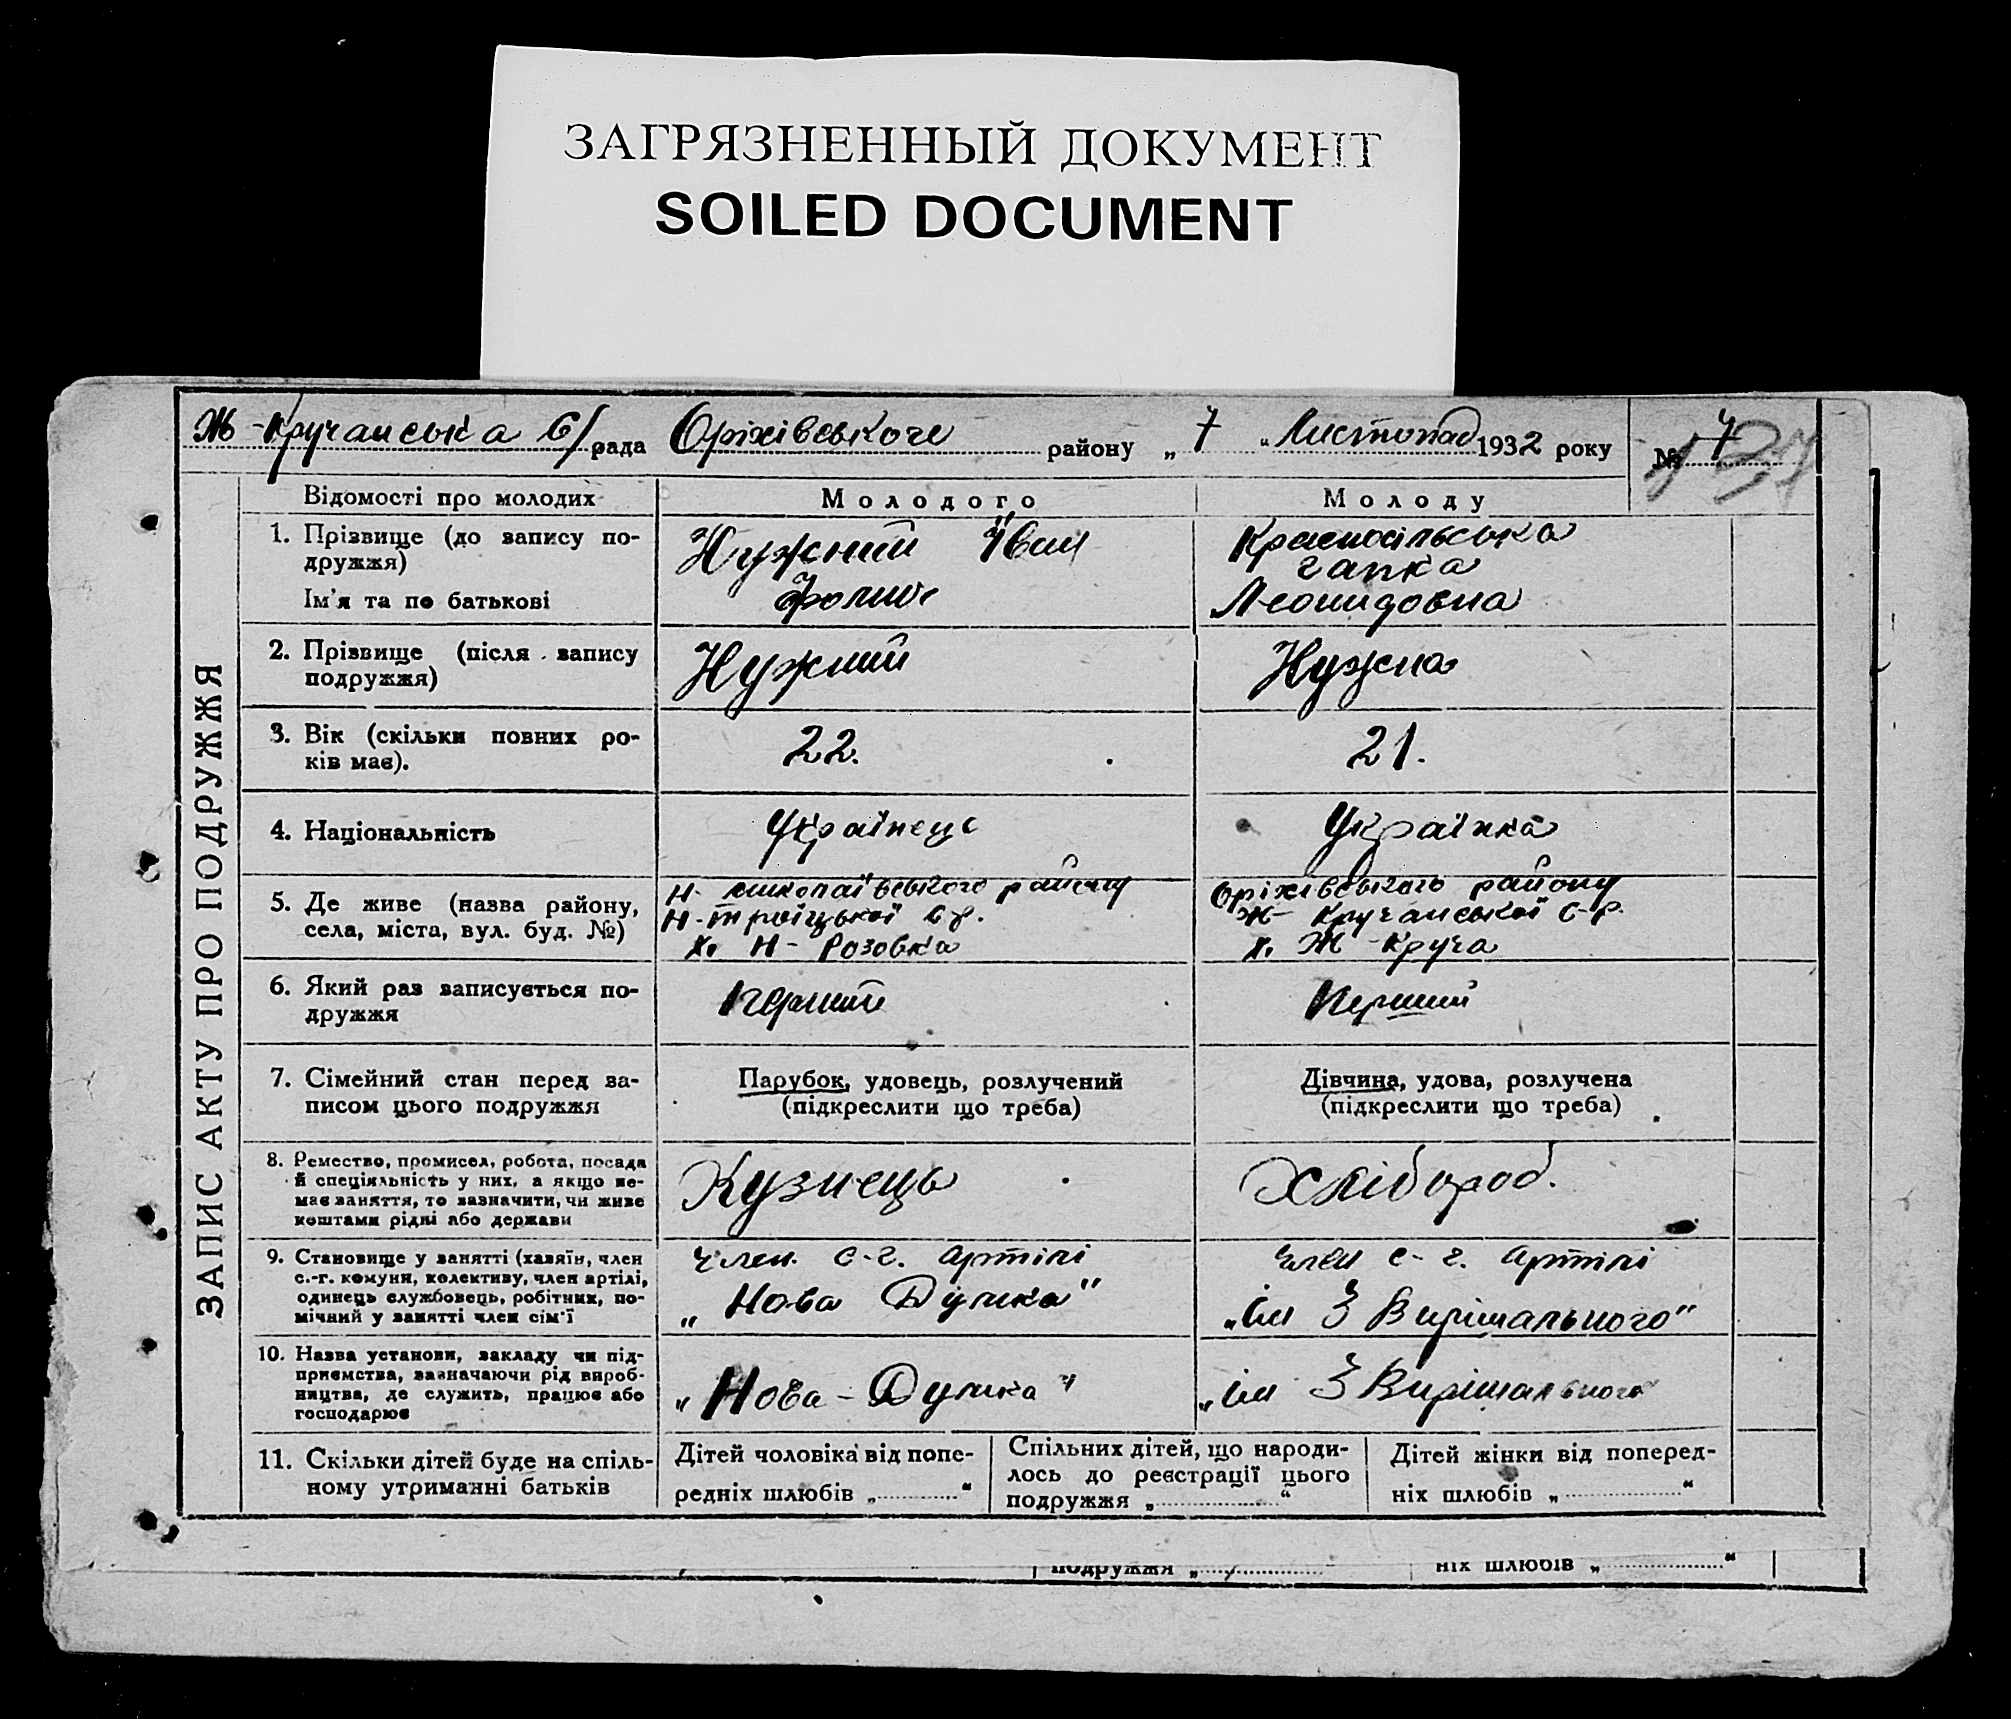 ЗАГРЯЗНЕННЫЙ ДОКУМЕНТ
SOILED DOCUMENT
Ж-Кручанська С/рада Оріхівського району „ 7 “ Листопад 1932 року № 7
Відомості про молодих
Молодого
Молоду
ЗАПИС АКТУ ПРО ПОДРУЖЖЯ
1. Прізвище (до запису по-
дружжя)
Ім'я та по батькові
Нужний Іван
Красносільська
Гапка
Леонидовна
2. Прізвище (після запису
подружжя)
Нужний
Нужна
3. Вік (скільки повних ро-
ків має).
22.
21.
4. Національність
Українець
Українка
5. Де живе (назва району,
села, міста, вул. буд. №)
Н-миколаївського району
Н-троїцької с.р.
х. Н-Розовка
Оріхівського району
Ж-Кручанської с-р.
х. Ж-Круча
6. Який раз записується по-
дружжя
Перший
Перший
7. Сімейний стан перед за-
писом цього подружжя
Парубок, удовець, розлучений
(підкреслити що треба)
Дівчина, удова, розлучена
(підкреслити що треба)
8. Ремество, промисел, робота, посада
й спеціяльність у них, а якщо не-
має заняття, то зазначити, чи живе
коштами рідні або держави
Кузнець
Хлібороб.
9. Становище у занятті (хазяїн, член
с.-г. комуни, колективу, член артілі,
одинець службовець, робітник, по-
мічний у занятті член сім'ї
член с-г. артілі
„Нова Думка“
член с-г. артілі
„ім 3 Вирішального“
10. Назва установи, закладу чи під-
приємства, зазначаючи рід вироб-
ництва, де служить, працює або
господарює
„Нова-Думка“
„ім 3 Вирішального
11. Скільки дітей буде на спіль-
ному утриманні батьків
Дітей чоловіка від попе-
редніх шлюбів „ “
Спільних дітей, що народи-
лось до реєстрації цього
подружжя „ “
Дітей жінки від поперед-
ніх шлюбів „ “
подружжя „ ніх шлюбів „ “